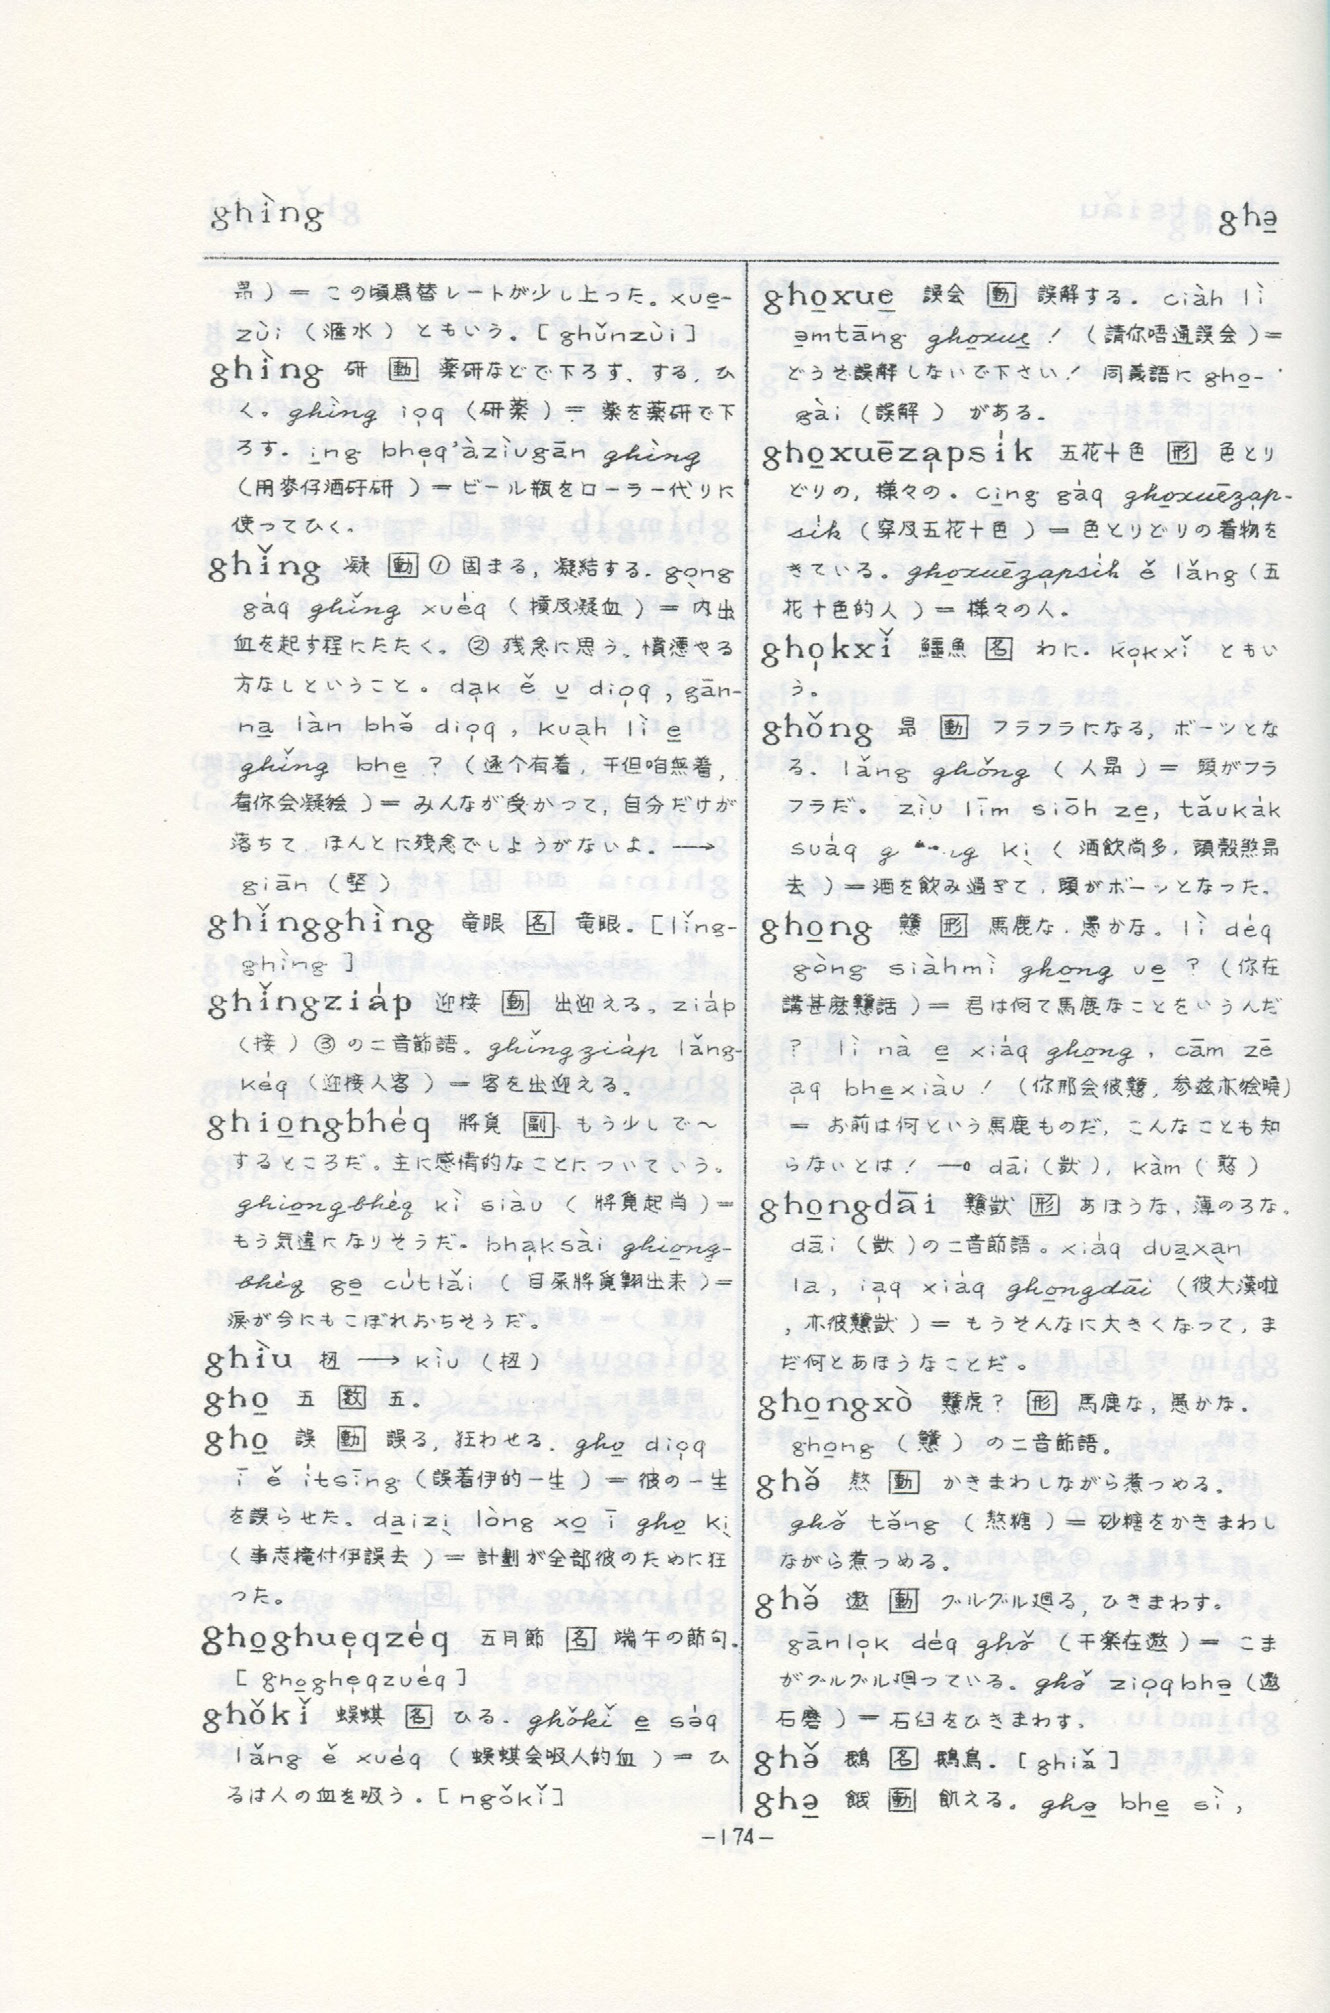 ghìng
ghə̱
昂）＝ この頃爲替レートが少し上った。xue̱-
zùi（滙水）ともいう。[ghǔnzùi]
ghìng 研 動 薬研などで下ろす、する、ひ
く。ghìng iọq（研薬）＝ 薬を薬研で下
ろす。i̱ng bhẹq'àziùgān ghìng
（用麥仔酒矸研）＝ビール瓶をローラー代りに
使ってひく。
ghǐng 凝 動 ①固まる，凝結する．gọng
gáq ghǐng xuéq（摃及凝血）＝ 内出
血を起す程にたたく。②残念に思う、憤懣やる
方なしということ。dạk ě u̱ diọq，gān-
na̱ làn bhə̌ diọq，kuạ̀h lì e̱
ghǐng bhe̱ ?（逐个有着，干但咱無着，
看你会凝絵）＝ みんなが受かって，自分だけが
落ちて，ほんとに残念でしようがないよ。─→
giān（堅）
ghǐngghìng 竜眼 名 竜眼．[lǐng-
ghìng ]
ghǐngziáp 迎接 動 出迎える。ziáp
（接）③の二音節語。ghǐngziáp lǎng-
kéq（迎接人客）＝ 客を出迎える。
ghio̱ngbhéq 將覓 副 もう少しで〜
するところだ。主に感情的なことについていう。
ghio̱ngbhéq kì siàu（將覓起肖）＝
もう気違になりそうだ。bhạksài ghio̱ng-
bhéq ge̱ cútlǎi（目屎將覓 出来）＝
涙が今にもこぼれおちそうだ。
ghìu 扭 ─→ kìu（扭）
gho̱ 五 数 五．
gho̱ 誤 動 誤る，狂わせる．gho̱ diọq
ī ě ítsīng（誤着伊的一生）＝ 彼の一生
を誤らせた。da̱izì lòng xo̱ ī gho̱ kì
（事志 付伊誤去）＝ 計劃が全部彼のために狂
った。
gho̱ghuẹqzéq 五月節 名 端午の節句．
[ gho̱ghẹqzuéq ]
ghǒkǐ 蜈蜞 名 ひる．ghǒkǐ e̱ sáq
lǎng ě xuéq（蜈蜞会吸人的血）＝ ひ
るは人の血を吸う．[ngǒkǐ]
gho̱xue̱ 誤会 動 誤解する．ciàh lì
ə̱mtāng gho̱xue̱！（請你唔通誤会）＝
どうぞ誤解しないで下さい！ 同義語に gho̱-
gài（誤解） がある．
gho̱xuēzạpsík 五花十色 形 色とり
どりの，様々の．cīng gáq gho̱xuēzạp-
sík（穿及五花十色）＝ 色とりどりの着物を
きている。gho̱xuēzạpsík ě lǎng（五
花十色的人）＝ 様々の人．
ghọkxǐ 鱷魚 名 わに．kọkxǐ ともい
う。
ghǒng 昻 動 フラフラになる，ボーンとな
る．lǎng ghǒng（人昻）＝ 頭がフラ
フラだ。ziù līm siōh ze̱，tǎukák
suáq g ng kì（酒飲尚多，頭殼煞昻
去）＝酒を飲み過ぎて，頭がボーンとなった。
gho̱ng 戇 形 馬鹿な，愚かな。lì déq
gòng siàhmì gho̱ng ue̱ ?（你在
講甚麽戇話）＝ 君は何て馬鹿なことをいうんだ
? lì nà e̱ xiáq gho̱ng，cām zē
ạq bhe̱xiàu！（你那会彼戇，参兹亦絵曉）
＝ お前は何という馬鹿ものだ，こんなことも知
らないとは！ ─o dāi（獃），kàm（憨）
gho̱ngdāi 戇獃 形 あほうな，薄のろな。
dāi（獃）の二音節語。xiáq dua̱xạn
la，iạq xiáq gho̱ngdāi（彼大漢啦
，亦彼戇獃）＝ もうそんなに大きくなって，ま
だ何とあほうなことだ。
gho̱ngxò 戇虎? 形 馬鹿な，愚かな．
gho̱ng（戇）の二音節語。
ghə̌ 熬 動 かきまわしながら煮つめる。
ghə̌ tə̌ng（熬糖）＝ 砂糖をかきまわし
ながら煮つめる。
ghə̌ 遨 動 グルグル廻る，ひきまわす。
gānlọk déq ghə̌（干楽在遨）＝ こま
がグルグル廻っている。ghə̌ ziọqbhə̱（遨
石磨）＝石臼をひきまわす．
ghə̌ 鵝 名 鵝鳥．[ghiǎ]
ghə̱ 餓 動 飢える。ghə̱ bhe̱ sì，
─174─